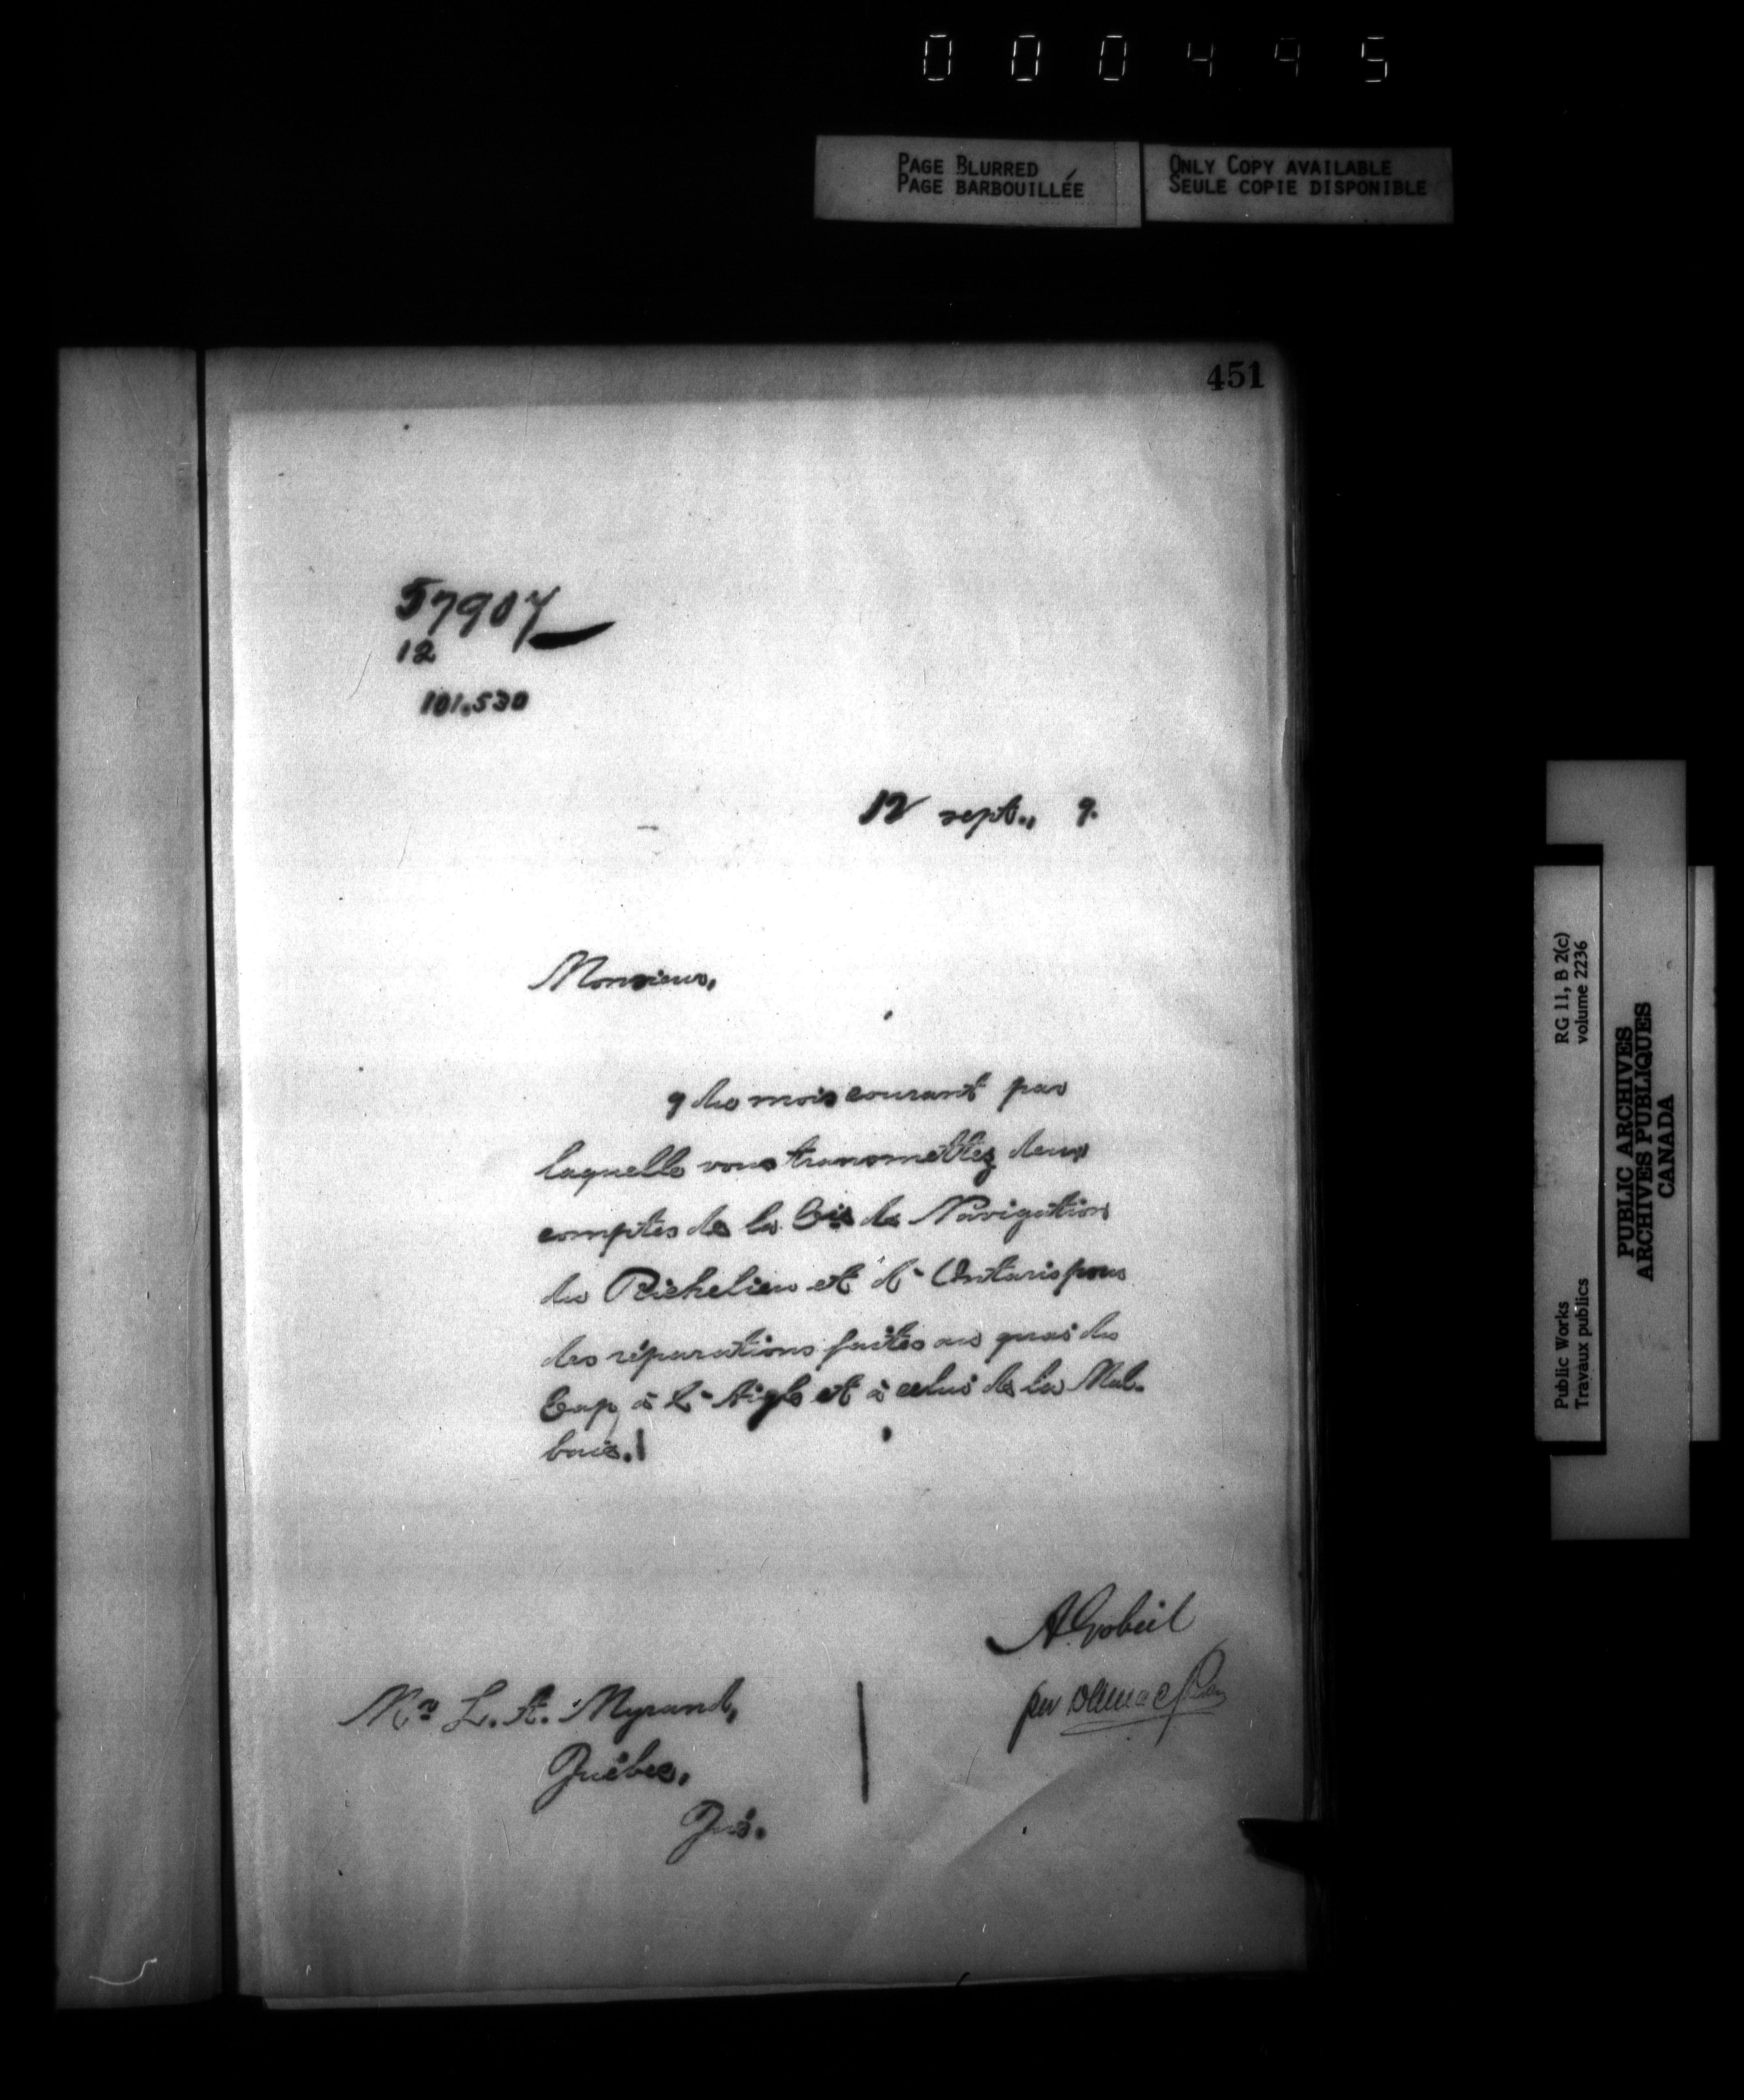 000495
PAGE BLURRED
PAGE BARBOUILLÉE
ONLY COPY AVAILABLE
SEULE COPIE DISPONIBLE
451
57907
12
101.530
12 sept., 9.
Monsieur,
9 du mois courant par
laquelle vous transmettez deux
comptes de la Cie de Navigation
du Richelieu et d'Ontario pour
des réparations faites au quai du
Cap à L'Aigle et à celui de la Mal-
baie.
A. Gobeil
per
Mr. L. A. Myrand,
Québec,
Qué.
RG 11, B 2(c)
volume 2236
Public Works
Travaux publics
PUBLIC ARCHIVES
ARCHIVES PUBLIQUES
CANADA